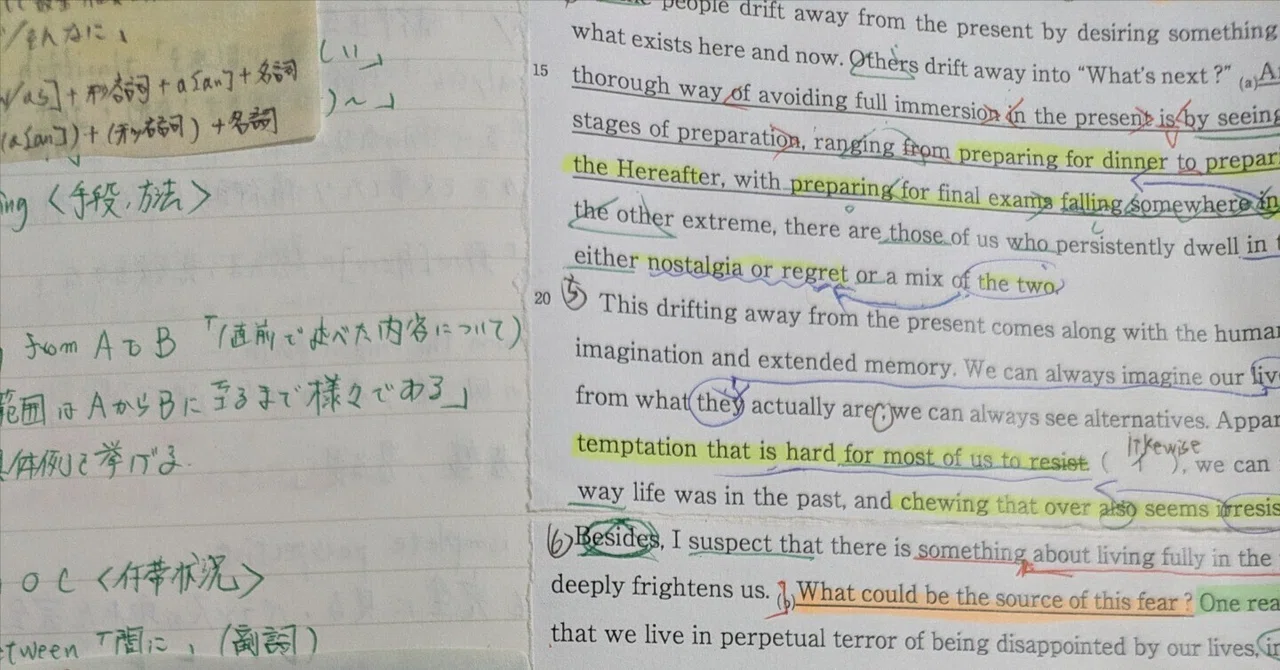 そんなに、
as]+形容詞+a[an]+名詞
(a[an])+(形容詞)+名詞
ing〈手段、方法〉
from A to B 「(直前で述べた内容について)
範囲はAからBに至るまで様々である」
具体例を挙げる
O C〈付帯状況〉
tween「間に、(副詞)
people drift away from the present by desiring something
what exists here and now. Others drift away into “What’s next?” (a)
15 thorough way of avoiding full immersion in the present is by seeing
stages of preparation, ranging from preparing for dinner to prepar
the Hereafter, with preparing for final exams falling somewhere in
the other extreme, there are those of us who persistently dwell in
either nostalgia or regret or a mix of the two.
20 ⑤ This drifting away from the present comes along with the human
imagination and extended memory. We can always imagine our live
from what they actually are; we can always see alternatives. Appar
temptation that is hard for most of us to resist. ( likewise ), we can
way life was in the past, and chewing that over also seems irresis
⑥ Besides, I suspect that there is something about living fully in the
deeply frightens us. (b)What could be the source of this fear? One rea
that we live in perpetual terror of being disappointed by our lives, in